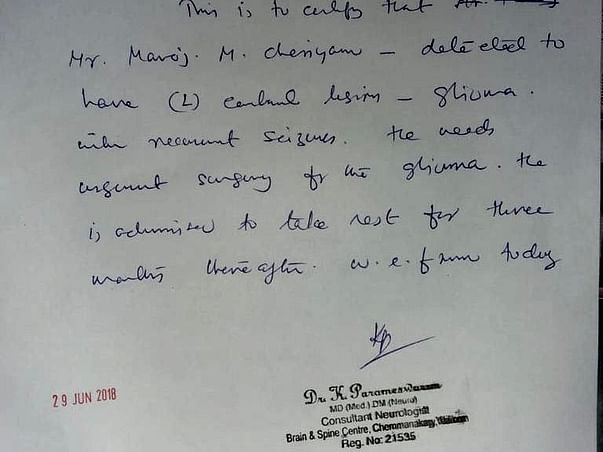 This is to certify that Mr.
Mr. Manoj. M. Cheriyam – detected to
have (L) central lesion – glioma.
with recurrent seizures. He needs
urgent surgery for the glioma. He
is advised to take rest for three
months thereafter. w.e.from today
29 JUN 2018
Dr. K. Parameswaran
MD (Med.) DM (Neuro)
Consultant Neurologist
Brain & Spine Centre, Chemmanakary,
Reg. No: 21535